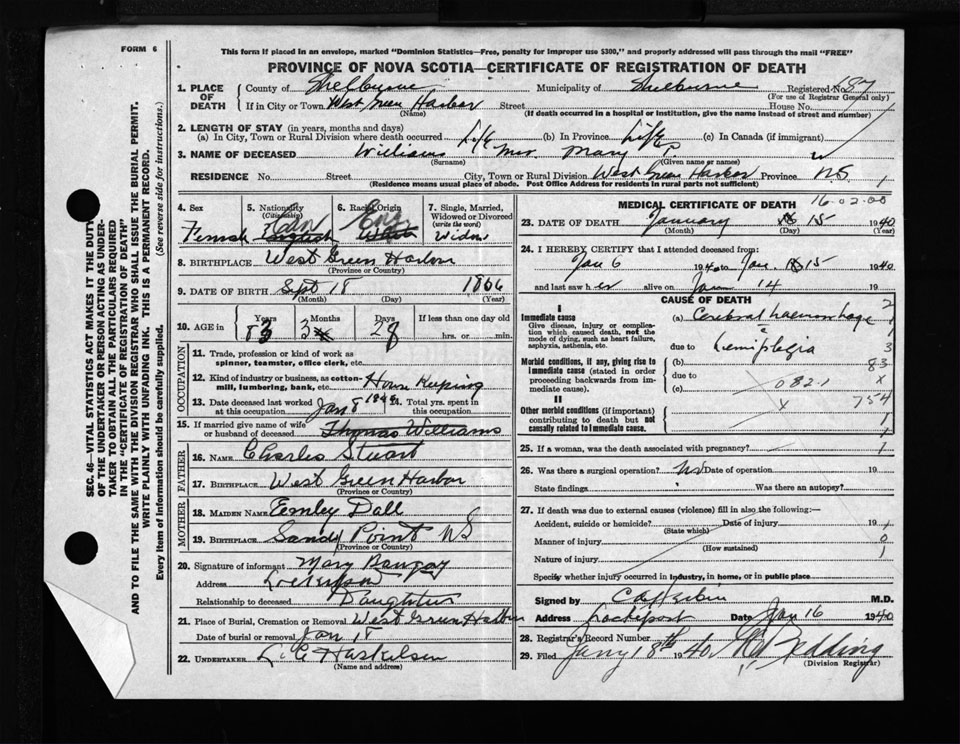 FORM 6
This form if placed in an envelope, marked "Dominion Statistics—Free, penalty for improper use $300," and properly addressed will pass through the mail "FREE"
PROVINCE OF NOVA SCOTIA—CERTIFICATE OF REGISTRATION OF DEATH
SEC. 46—VITAL STATISTICS ACT MAKES IT THE DUTY
OF THE UNDERTAKER OR PERSON ACTING AS UNDER-
TAKER TO OBTAIN ALL THE PARTICULARS REQUIRED
IN THE "CERTIFICATE OF REGISTRATION OF DEATH"
AND TO FILE THE SAME WITH THE DIVISION REGISTRAR WHO SHALL ISSUE THE BURIAL PERMIT.
WRITE PLAINLY WITH UNFADING INK. THIS IS A PERMANENT RECORD.
Every item of information should be carefully supplied. (See reverse side for instructions.)
1. PLACE OF DEATH County of Shelburne Municipality of Shelburne Registered No. 187
(For use of Registrar General only)
If in City or Town West Green Harbor Street House No.
(Name) (If death occurred in a hospital or institution, give the name instead of street and number)
2. LENGTH OF STAY (in years, months and days)
(a) In City, Town or Rural Division where death occurred Life (b) In Province Life (c) In Canada (if immigrant)
3. NAME OF DECEASED Williams Mrs. Mary P.
(Surname) (Given name or names)
RESIDENCE No. Street City, Town or Rural Division West Green Harbor Province N.S.
(Residence means usual place of abode. Post Office Address for residents in rural parts not sufficient)
4. Sex Female
5. Nationality (Citizenship)
6. Racial Origin Eng
7. Single, Married, Widowed or Divorced (write the word) Widow
8. BIRTHPLACE West Green Harbor
(Province or Country)
9. DATE OF BIRTH Sept 18 1866
(Month) (Day) (Year)
10. AGE in Years 83 Months 3 Days 28 If less than one day old
hrs. or min.
OCCUPATION
11. Trade, profession or kind of work as spinner, teamster, office clerk, etc.
12. Kind of industry or business, as cotton-mill, lumbering, bank, etc. House Keeping
13. Date deceased last worked at this occupation Jan 8
14. Total yrs. spent in this occupation
15. If married give name of wife or husband of deceased Thomas Williams
FATHER
16. NAME Charles Stuart
17. BIRTHPLACE West Green Harbor
(Province or Country)
MOTHER
18. MAIDEN NAME Dall
19. BIRTHPLACE Sandy Point NS
(Province or Country)
20. Signature of informant Mary
Address
Relationship to deceased Daughter
21. Place of Burial, Cremation or Removal West Green Harbor
Date of burial or removal Jan 18
22. UNDERTAKER
(Name and address)
16-02-00
MEDICAL CERTIFICATE OF DEATH
23. DATE OF DEATH January 15 1940
(Month) (Day) (Year)
24. I HEREBY CERTIFY that I attended deceased from:
Jan 6 1940 to Jan. 15 1940
and last saw her alive on Jan 14 19
CAUSE OF DEATH
I
Immediate cause (a) Cerebral haemorhage 2
Give disease, injury or complication which caused death, not the mode of dying, such as heart failure, asphyxia, asthenia, etc.
due to Hemiplegia 3
Morbid conditions, if any, giving rise to immediate cause (stated in order proceeding backwards from immediate cause).
(b) 83
due to x
(c) 082.1 754
II
Other morbid conditions (if important) contributing to death but not causally related to immediate cause. x 1
25. If a woman, was the death associated with pregnancy? 1
26. Was there a surgical operation? No Date of operation 19
State findings Was there an autopsy?
27. If death was due to external causes (violence) fill in also the following:—
Accident, suicide or homicide? Date of injury 19
(State which)
Manner of injury 0
(How sustained)
Nature of injury 1
Specify whether injury occurred in industry, in home, or in public place
Signed by M.D.
Address Lockeport Date Jan 16 1940
28. Registrar's Record Number
29. Filed Jany 18th 1940
(Division Registrar)